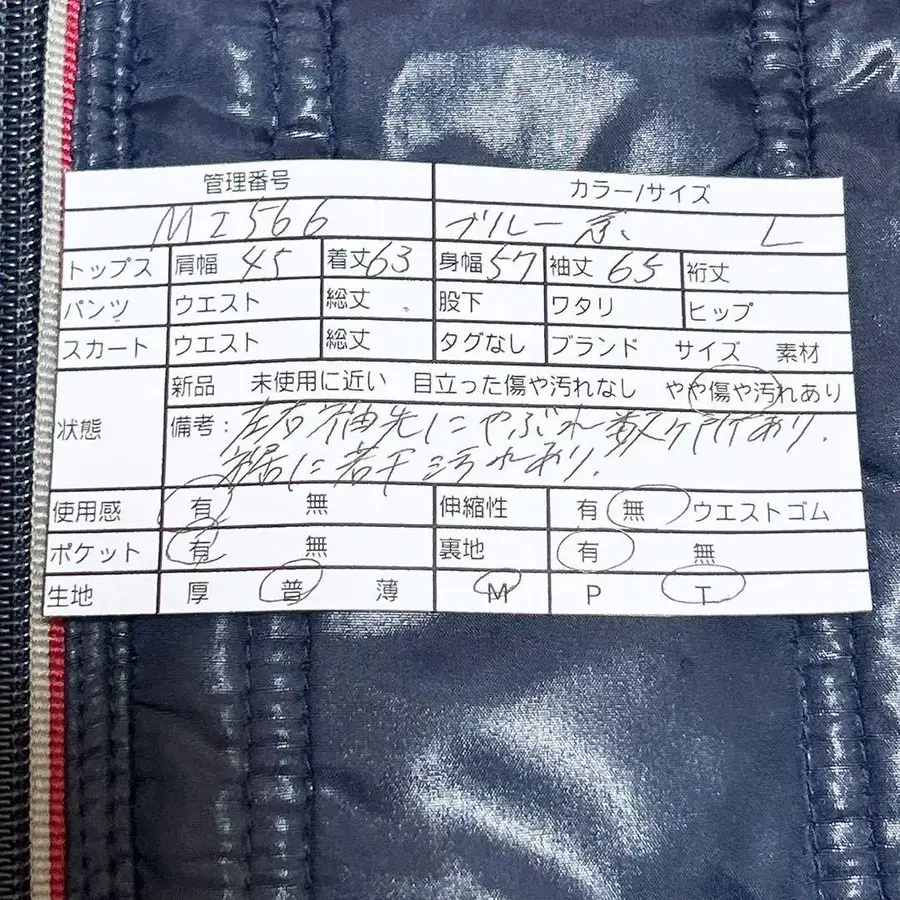 管理番号 カラー/サイズ
MI566 ブルー系 L
トップス 肩幅 45 着丈 63 身幅 57 袖丈 65 裄丈
パンツ ウエスト 総丈 股下 ワタリ ヒップ
スカート ウエスト 総丈 タグなし ブランド サイズ 素材
状態 新品 未使用に近い 目立った傷や汚れなし やや傷や汚れあり
備考: 左右袖先にやぶれ数ヶ所あり.
裾に若干汚れあり.
使用感 有 無 伸縮性 有 無 ウエストゴム
ポケット 有 無 裏地 有 無
生地 厚 普 薄 M P T